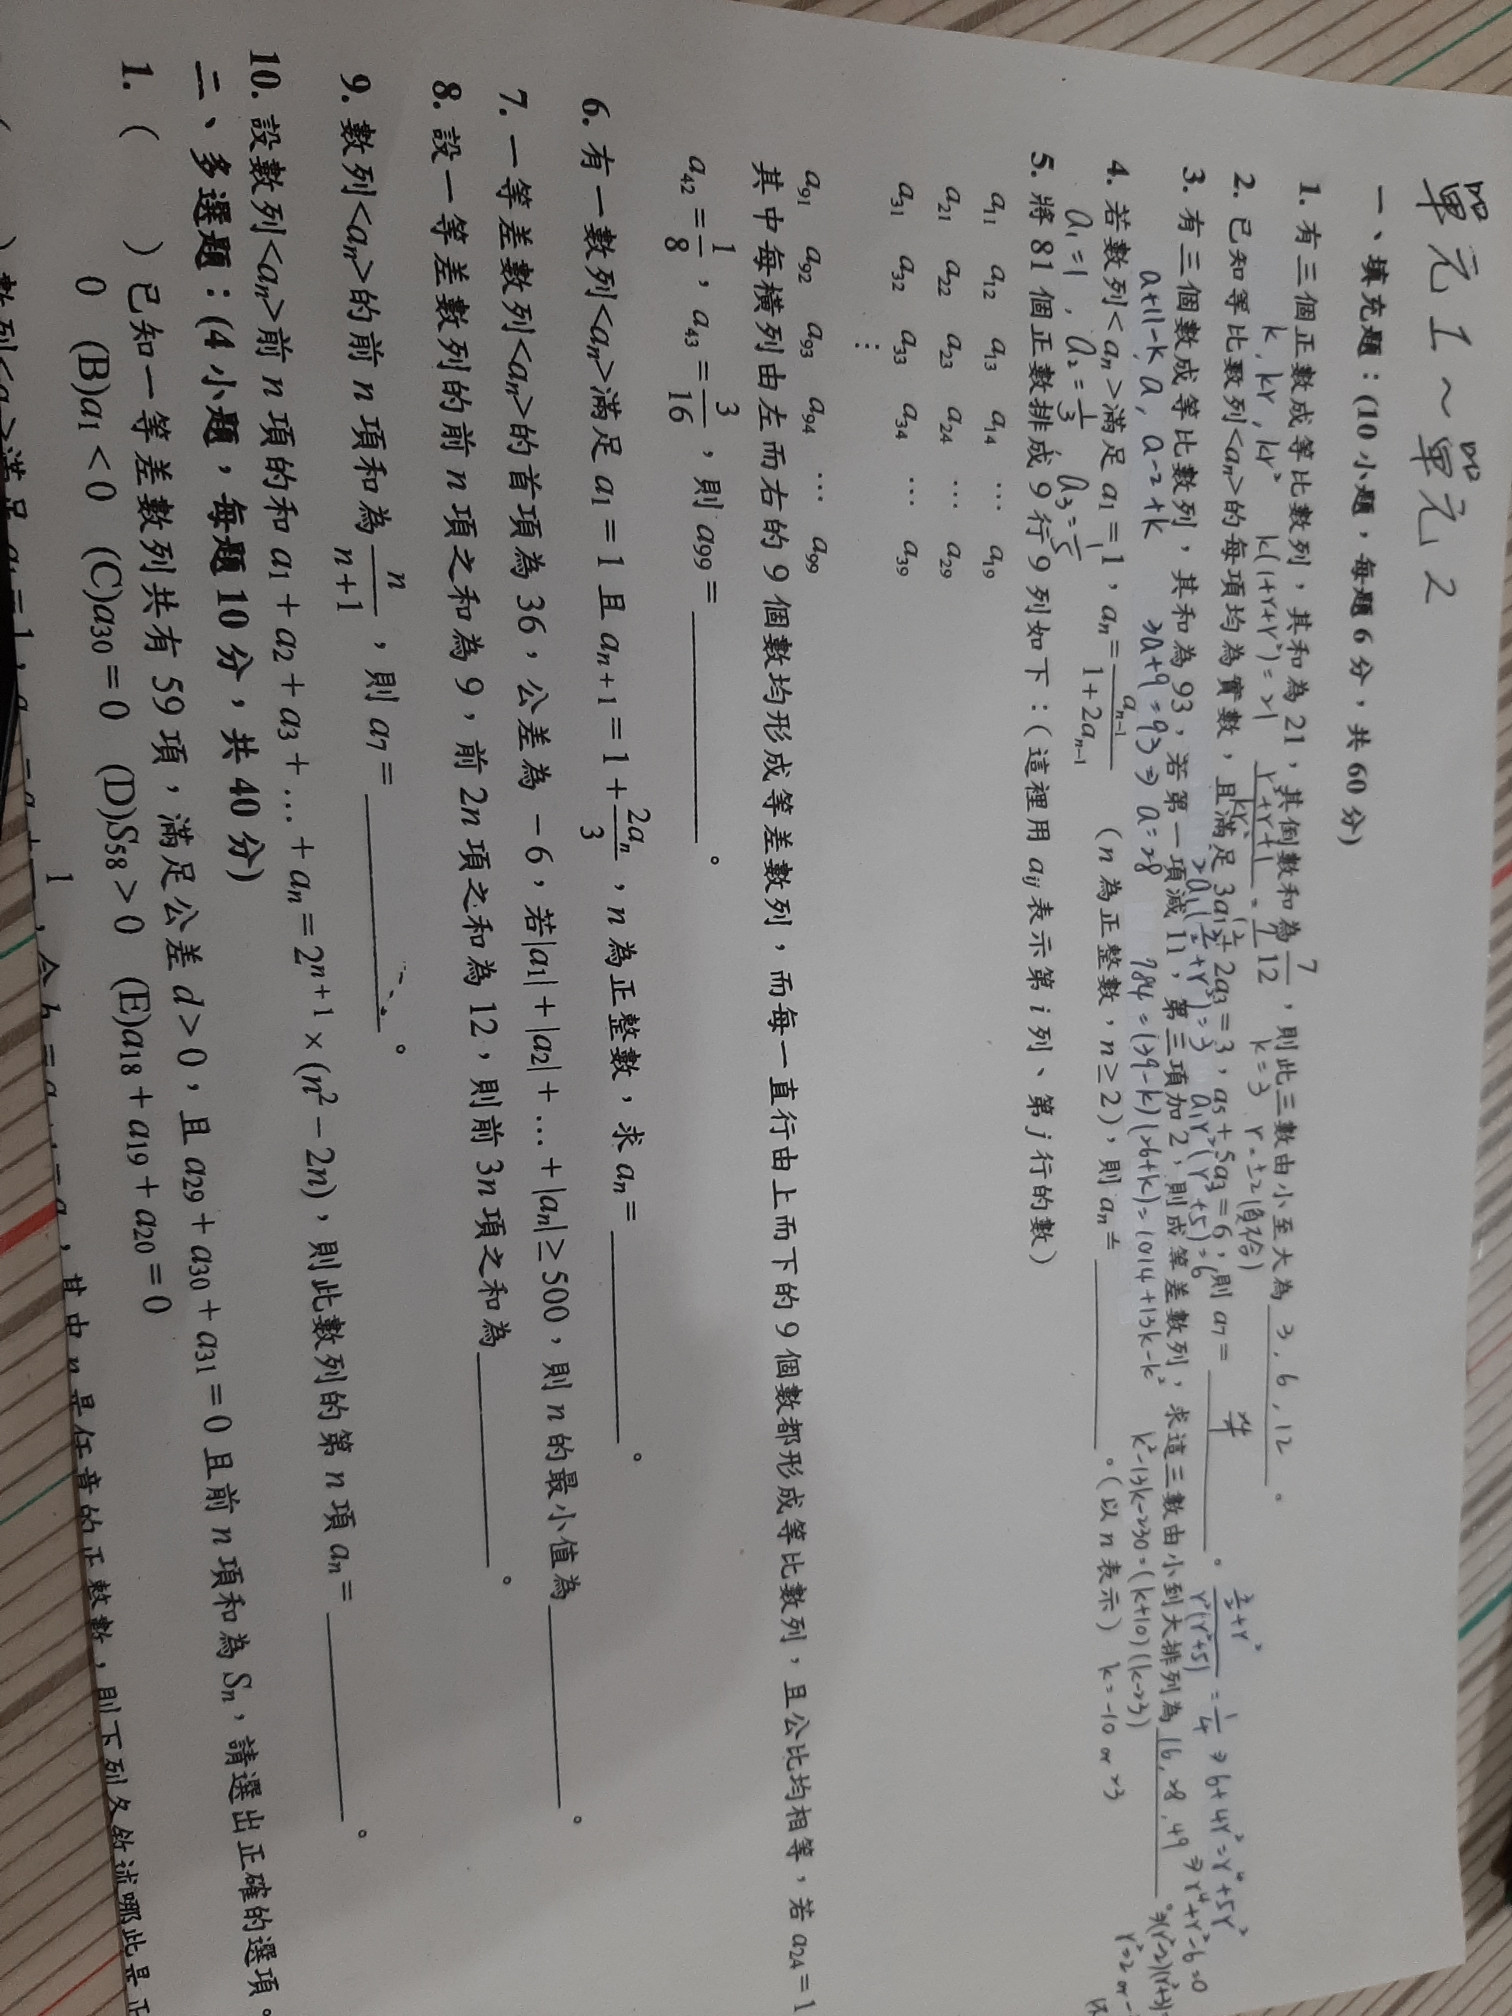 單元1～單元2
一、填充題：(10 小題，每題 6 分，共 60 分)
1. 有三個正數成等比數列，其和為 21，其倒數和為 7/12，則此三數由小至大為 3, 6, 12 。
k, kr, kr² k(1+r+r²)=21 (r²+r+1)/kr² = 7/12 k=3 r=±2(負不合)
2. 已知等比數列<aₙ>的每項均為實數，且滿足 3a₁+2a₃=3，a₅+5a₃=6，則 a₇= 。
a₁r²(r²+5)=6
r²(r²+5) = 1/4 ⇒ 6+4r²=r⁴+5r²
⇒ r⁴+r²-6=0
3. 有三個數成等比數列，其和為 93，若第一項減 11，第三項加 2，則成等差數列，求這三數由小到大排列為 16, 28, 49 。
a+11-k, a, a-2+k 3a+9=93 ⇒ a=28 784=(39-k)(26+k)=1014+13k-k² k²-13k-230=(k+10)(k-23) k=-10 or 23
4. 若數列<aₙ>滿足 a₁=1，aₙ=aₙ₋₁/(1+2aₙ₋₁) (n 為正整數，n≥2)，則 aₙ= 。(以 n 表示)
a₁=1, a₂=1/3, a₃=1/5
5. 將 81 個正數排成 9 行 9 列如下：(這裡用 aᵢⱼ 表示第 i 列、第 j 行的數)
a₁₁ a₁₂ a₁₃ a₁₄ … a₁₉
a₂₁ a₂₂ a₂₃ a₂₄ … a₂₉
a₃₁ a₃₂ a₃₃ a₃₄ … a₃₉
⋮
a₉₁ a₉₂ a₉₃ a₉₄ … a₉₉
其中每橫列由左而右的 9 個數均形成等差數列，而每一直行由上而下的 9 個數都形成等比數列，且公比均相等，若 a₂₄=1
a₄₂=1/8，a₄₃=3/16，則 a₉₉= 。
6. 有一數列<aₙ>滿足 a₁=1 且 aₙ₊₁=1+2aₙ/3，n 為正整數，求 aₙ= 。
7. 一等差數列<aₙ>的首項為 36，公差為 −6，若|a₁|+|a₂|+…+|aₙ|≥500，則 n 的最小值為 。
8. 設一等差數列的前 n 項之和為 9，前 2n 項之和為 12，則前 3n 項之和為 。
9. 數列<aₙ>的前 n 項和為 n/(n+1)，則 a₇= 。
10. 設數列<aₙ>前 n 項的和 a₁+a₂+a₃+…+aₙ=2ⁿ⁺¹×(n²−2n)，則此數列的第 n 項 aₙ= 。
二、多選題：(4 小題，每題 10 分，共 40 分)
1. ( ) 已知一等差數列共有 59 項，滿足公差 d>0，且 a₂₉+a₃₀+a₃₁=0 且前 n 項和為 Sₙ，請選出正確的選項。
0 (B)a₁<0 (C)a₃₀=0 (D)S₅₈>0 (E)a₁₈+a₁₉+a₂₀=0